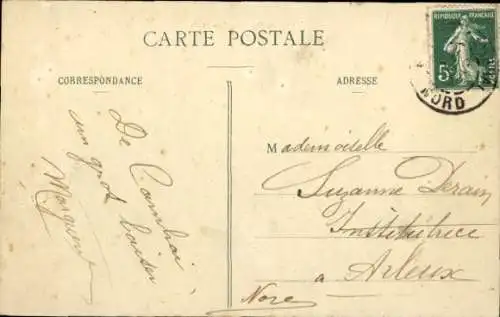 CARTE POSTALE
REPUBLIQUE FRANÇAISE
5c
NORD
CORRESPONDANCE
De Cambrai
un gros baiser
Marguerite
ADRESSE
Mademoiselle
Suzanne Derain
Institutrice
a Arleux
Nord